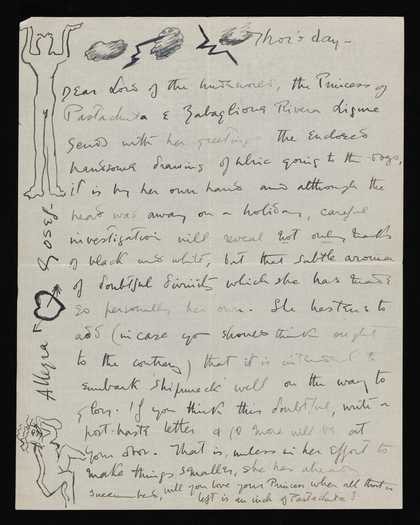 Thor's day –
Dear Lord of the Underworld, the Princess of
Pastachuta & Zabaglione Rivera Ligure
sends with her greetings the enclosed
handsome drawing of going to the dogs,
it is by her own hands and although the
head was away on a holiday, careful
investigation will reveal not only
of black and white, but that subtle aroma
of doubtful divinity which she has made
so personally her own. She hastens to
add (in case you should think ought
to the contrary) that it is intended to
embark Shipwreck well on the way to
glory. If you think this doubtful, write a
post haste letter & 10 more will be at
your door. That is, unless in her effort to
make things smaller, she has already
succumbed, will you love your Princess when all that is
left is an inch of Pastachuta?
Allegra
Gosef